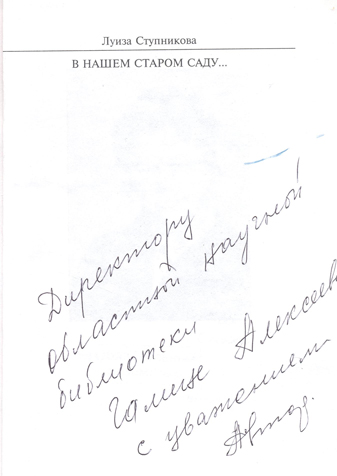 Луиза Ступникова
В НАШЕМ СТАРОМ САДУ...
Директору
областной научной
библиотеки
Галине Алексеев
с уважением
Автор.